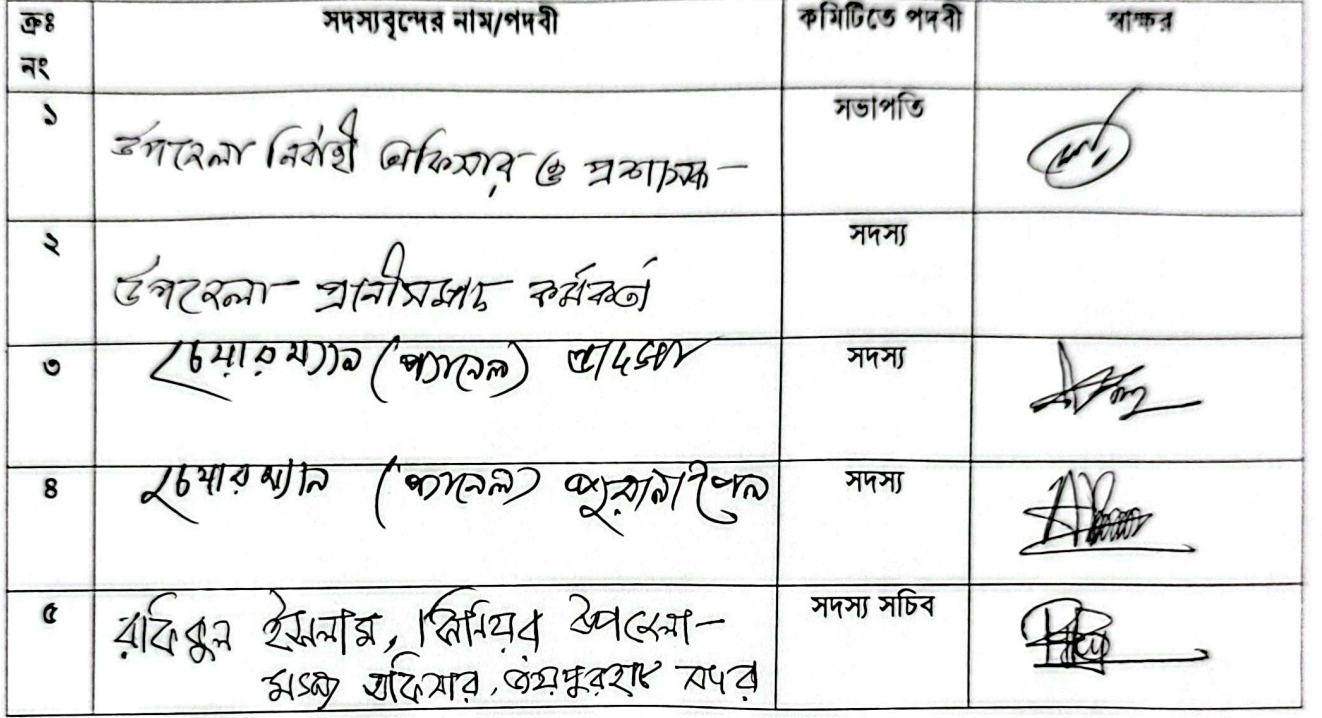 ক্রঃ নং সদস্যবৃন্দের নাম/পদবী কমিটিতে পদবী স্বাক্ষর
১ উপজেলা নির্বাহী অফিসার ও প্রশাসক সভাপতি
২ উপজেলা প্রানীসম্পদ কর্মকর্তা সদস্য
৩ চেয়ারম্যান (প্যানেল) সদস্য
৪ চেয়ারম্যান (প্যানেল) পুরানাপৈল সদস্য
৫ রফিকুল ইসলাম, সিনিয়র উপজেলা সদস্য সচিব
মৎস্য অফিসার, জয়পুরহাট সদর